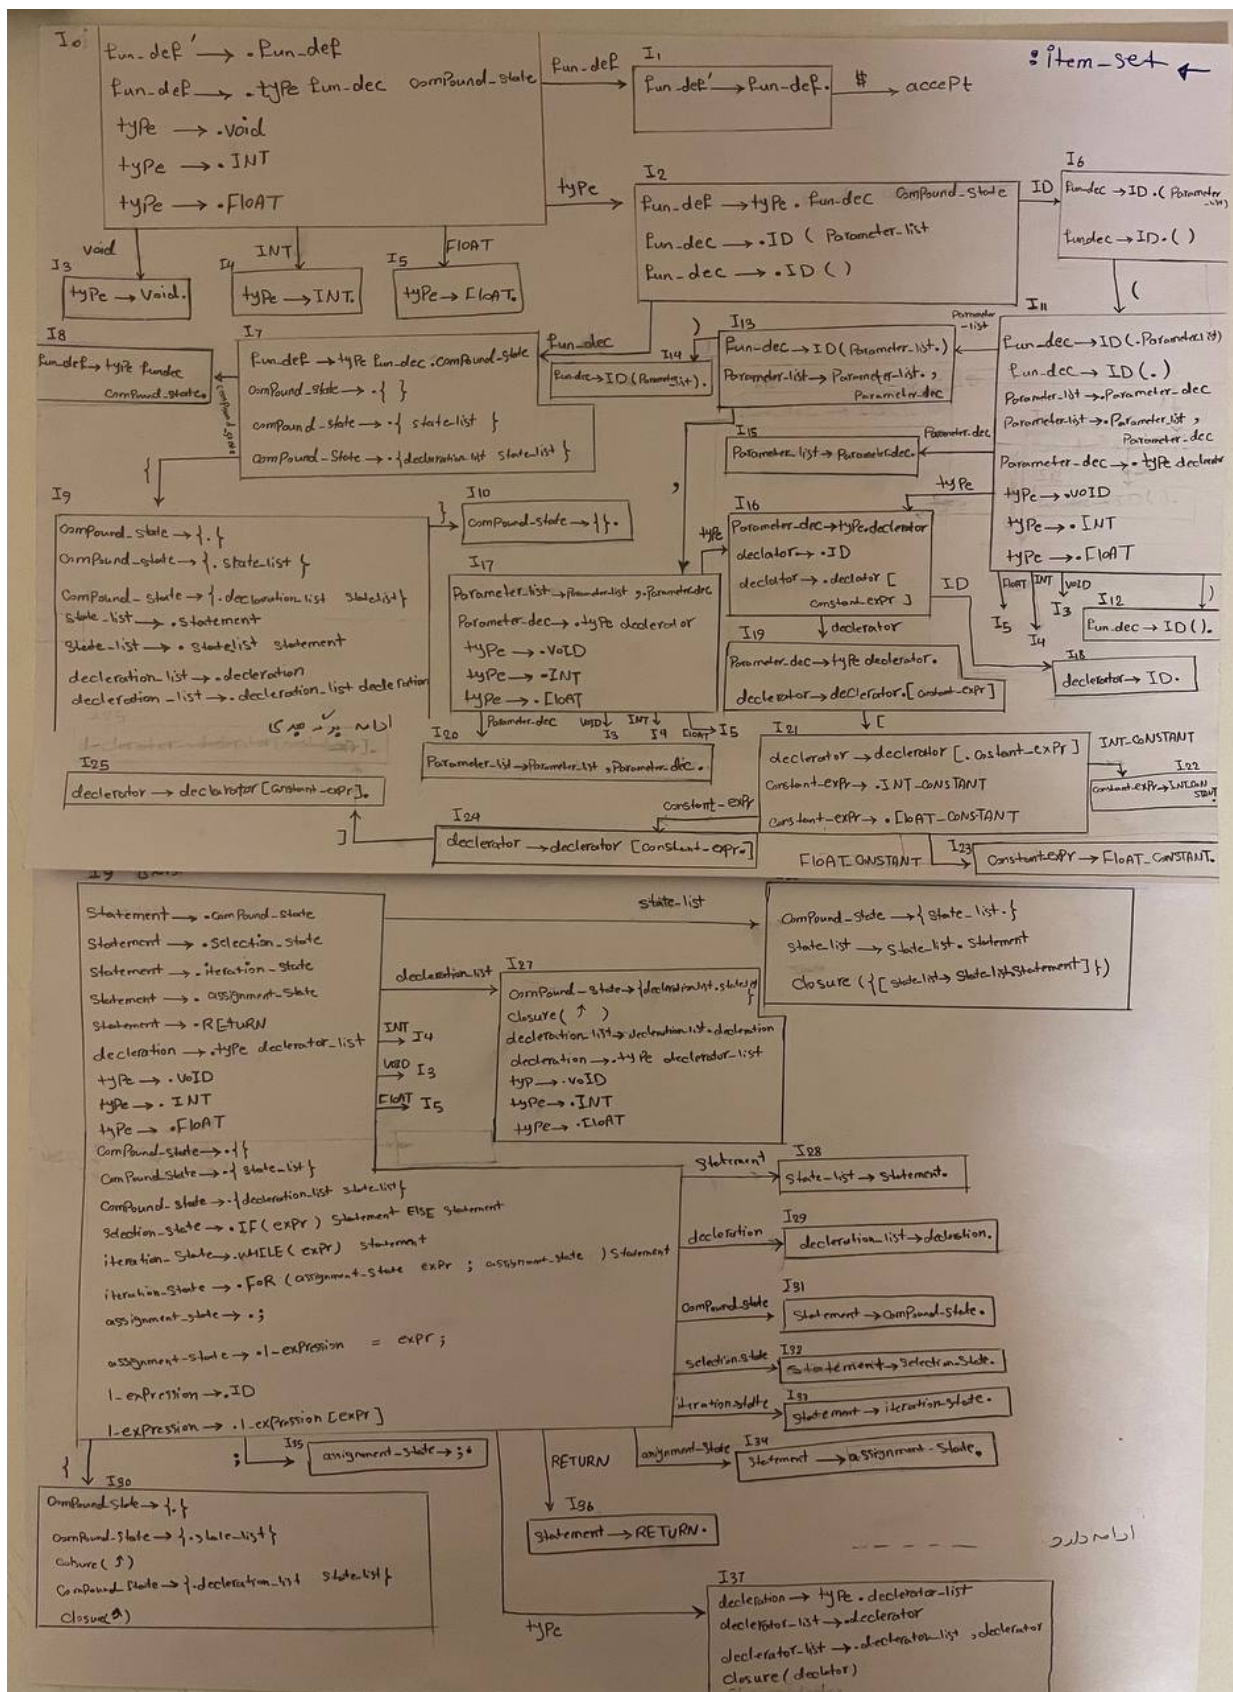 : item-set ←
I0
fun-def' → .fun-def
fun-def → .type fun-dec compound-state
type → .void
type → .INT
type → .FloAT
fun-def
I1
fun-def' → fun-def.
$
accept
type
I2
fun-def → type. fun-dec compound-state
fun-dec → .ID ( Parameter-list
fun-dec → .ID ()
ID
I6
fun-dec → ID.( Parameter-list)
fundec → ID.( )
(
void
I3
type → Void.
INT
I4
type → INT.
FloAT
I5
type → FloAT.
fun-dec
I7
fun-def → type fun-dec .compound-state
compound-state → .{ }
compound-state → .{ state-list }
compound-State → .{decleration-list statelist }
compound-state
I8
fun-def → type fundec
compound-state.
)
I14
fundec → ID(Parameter-list).
I13
fun-dec → ID(Parameter-list.)
Parameter-list → Parameter-list. ,
Parameter-dec
Parameter-list
I11
fun-dec → ID(.Parameterlist)
fun-dec → ID(.)
Parameter-list → .Parameter-dec
Parameter-list → .Parameter-list ,
Parameter-dec
Parameter-dec → . type declerator
type → .VOID
type → .INT
type → .FloAT
Parameter-dec
I15
Parameter-list → Parameter-dec.
type
I16
Parameter-dec → type.declerator
declator → .ID
declator → .declator [
constant-expr ]
ID
FloAT INT VOID
I5 I4 I3
)
I12
fun-dec → ID().
I18
declerator → ID.
declerator
I19
Parameter-dec → type declerator.
declerator → declerator.[constant-expr]
{
I9
compound-state → {.}
compound-state → {. state-list }
compound-state → {.decleration-list statelist}
state-list → .statement
state-list → . statelist statement
decleration-list → .decleration
decleration-list → .decleration-list decleration
}
I10
compound-state → { }.
,
type
I17
Parameter-list → Parameter-list ,.Parameter-dec
Parameter-dec → .type declerator
type → .VOID
type → .INT
type → .FloAT
Parameter-dec
VOID I3
INT I4
FloAT I5
I20
Parameter-list → Parameter-list , Parameter-dec.
[
I21
declerator → declerator [. Costant-expr]
Constant-expr → .INT-CONSTANT
constant-expr → .FloAT-CONSTANT
INT-CONSTANT
I22
constant-expr → INTCONSTANT.
FloAT_CONSTANT
I23
Constant-expr → FLOAT_CONSTANT.
constant-expr
I24
declerator → declerator [constant-expr.]
]
I25
declerator → declarator [constant-expr].
I9
Statement → .compound-state
Statement → .selection-state
Statement → .iteration-state
Statement → . assignment-state
Statement → .RETURN
decleration → .type declerator_list
type → .VOID
type → . INT
type → .FloAT
compound-state → .{}
compound-state → .{ state-list}
compound-state → .{decleration-list statelist}
selection-state → .IF( expr ) Statement ElSE statement
iteration-state → .WHILE( expr) statement
iteration-state → .FOR (assignment-state expr ; assignment-state ) Statement
assignment-state → .;
assignment-state → .l-expression = expr;
l-expression → .ID
l-expression → .l-expression [expr]
state-list
compound-state → {state-list.}
state-list → state-list. statement
closure ({[statelist → State-list.Statement]})
decleration-list
I27
compound-state → {declerationlist.statelist}
Closure( ↑ )
decleration-list → decleration-list.decleration
decleration → .type declerator-list
typ → .VOID
type → .INT
type → .FloAT
INT I4
VOID I3
FloAT I5
Statement
I28
state-list → statement.
decleration
I29
decleration-list → decleration.
compound-state
I31
Statement → compound-state.
selection-state
I32
Statement → selection-state.
iteration-state
I33
Statement → iteration-state.
assignment-state
I34
Statement → assignment-state.
;
I35
assignment-state → ;.
{
I30
compound state → {.}
compound-state → {.state-list}
closure( ↑ )
compound state → {.decleration-list state-list}
closure( ↑ )
RETURN
I36
Statement → RETURN.
ادامه دارد
type
I37
decleration → type. declerator-list
declerator-list → .declerator
declerator-list → .declerator-list , declerator
closure (declator)